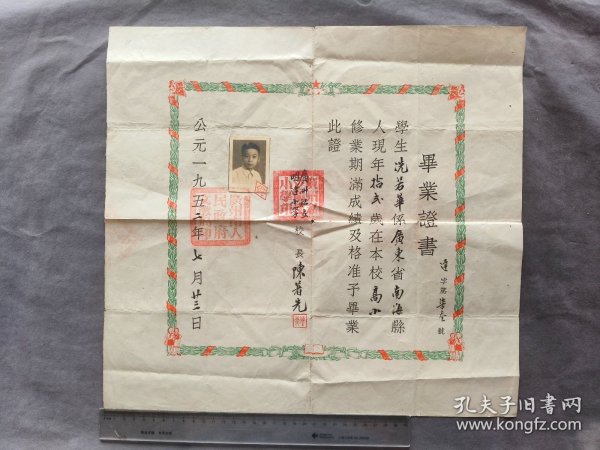 畢業證書
達字第柒壹號
學生冼若華係廣東省南海縣
人現年拾貳歲在本校高小
修業期滿成績及格准予畢業
此證
校長陳若先
公元一九五二年七月廿三日
孔夫子旧书网
www.kongfz.com